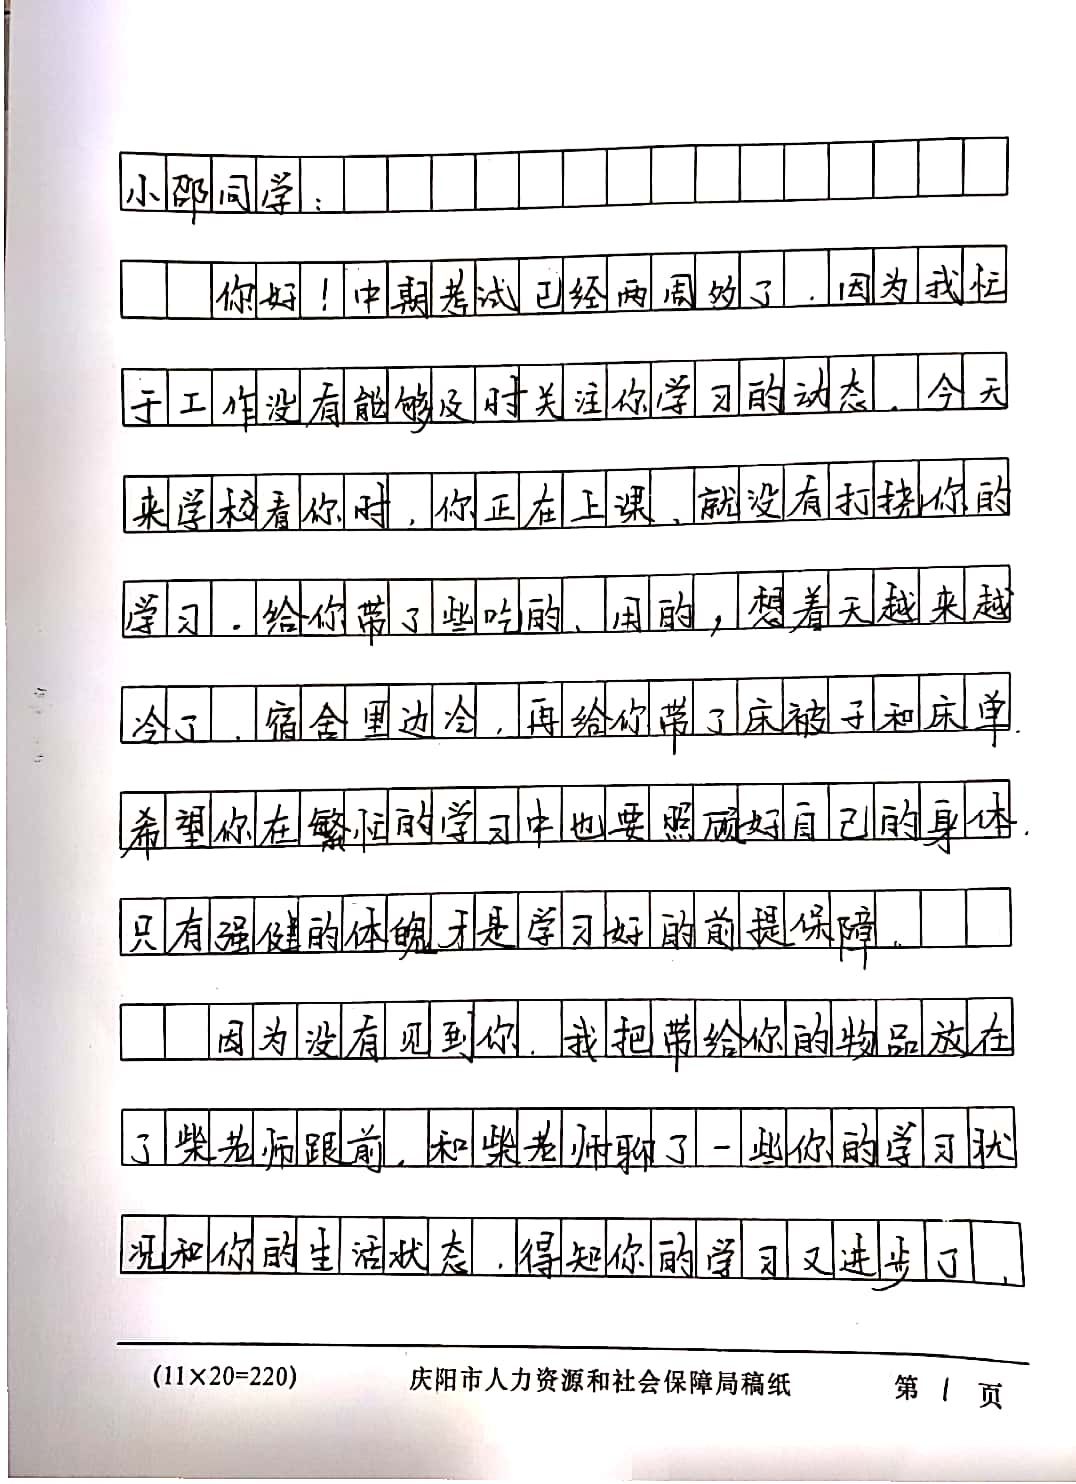 小邵同学：
你好！中期考试已经两周的了，因为我忙
于工作没有能够及时关注你学习的动态，今天
来学校看你时，你正在上课，就没有打挠你的
学习。给你带了些吃的、用的，想着天越来越
冷了，宿舍里边冷，再给你带了床被子和床单.
希望你在繁忙的学习中也要照顾好自己的身体.
只有强健的体魄才是学习好的前提保障.
因为没有见到你，我把带给你的物品放在
了柴老师跟前，和柴老师聊了一些你的学习状
况和你的生活状态，得知你的学习又进步了，
(11×20=220) 庆阳市人力资源和社会保障局稿纸 第 1 页